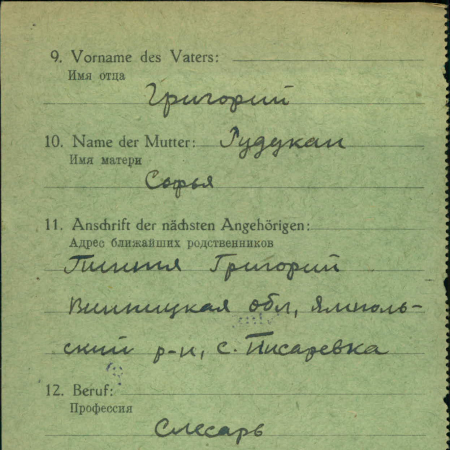 9. Vorname des Vaters:
Имя отца
Григорий
10. Name der Mutter: Рудукан
Имя матери
Софья
11. Anschrift der nächsten Angehörigen:
Адрес ближайших родственников
Григорий
Винницкая обл, Ямполь-
ский р-н, с. Писаревка
12. Beruf:
Профессия
Слесарь